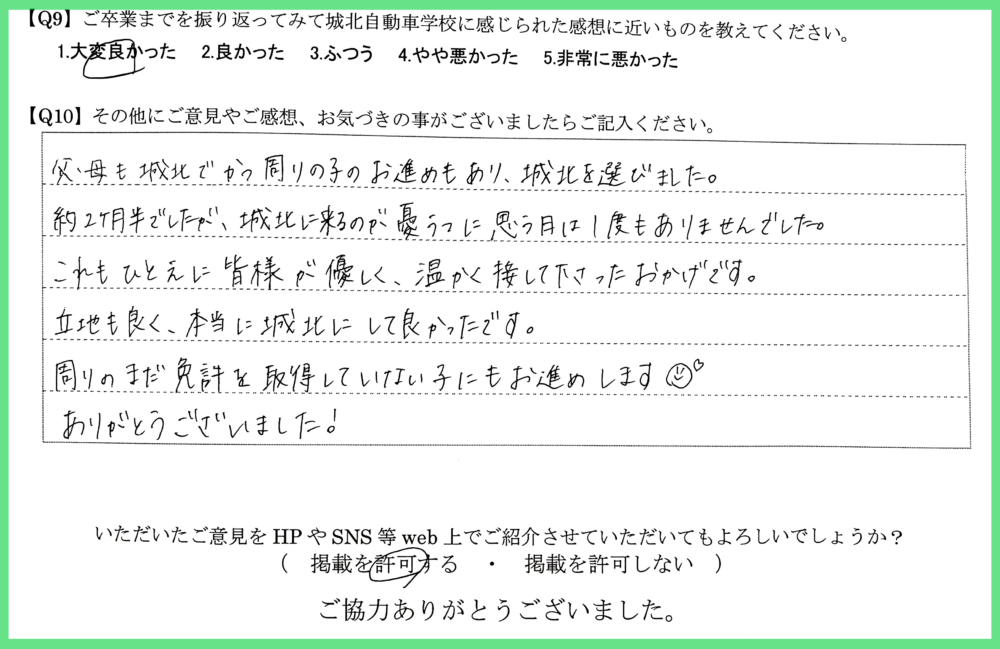 【Q9】ご卒業までを振り返ってみて城北自動車学校に感じられた感想に近いものを教えてください。
1.大変良かった 2.良かった 3.ふつう 4.やや悪かった 5.非常に悪かった
【Q10】その他にご意見やご感想、お気づきの事がございましたらご記入ください。
父・母も城北でかつ周りの子のお進めもあり、城北を選びました。
約2ヶ月半でしたが、城北に来るのが憂うつに思う日は1度もありませんでした。
これもひとえに皆様が優しく、温かく接して下さったおかげです。
立地も良く、本当に城北にして良かったです。
周りのまだ免許を取得していない子にもお進めします
ありがとうございました!
いただいたご意見をHPやSNS等web上でご紹介させていただいてもよろしいでしょうか?
( 掲載を許可する ・ 掲載を許可しない )
ご協力ありがとうございました。